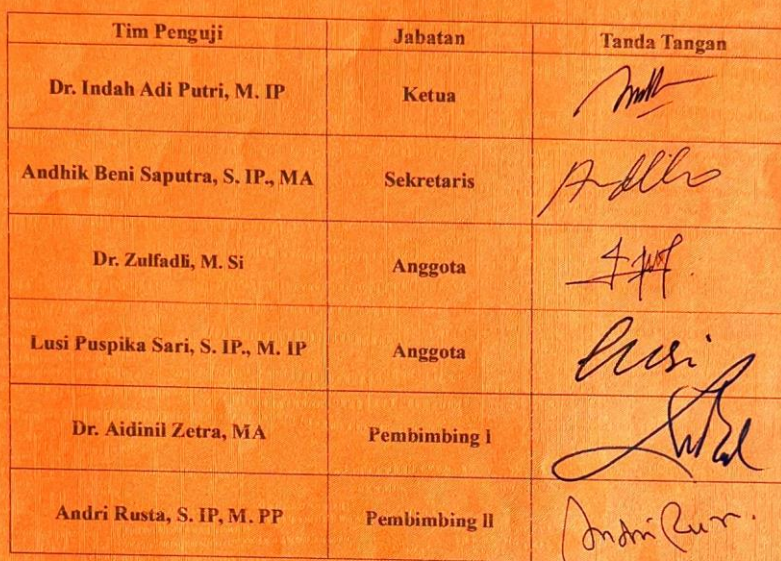 Tim Penguji Jabatan Tanda Tangan
Dr. Indah Adi Putri, M. IP Ketua
Andhik Beni Saputra, S. IP., MA Sekretaris
Dr. Zulfadli, M. Si Anggota
Lusi Puspika Sari, S. IP., M. IP Anggota Lusi
Dr. Aidinil Zetra, MA Pembimbing I
Andri Rusta, S. IP, M. PP Pembimbing II